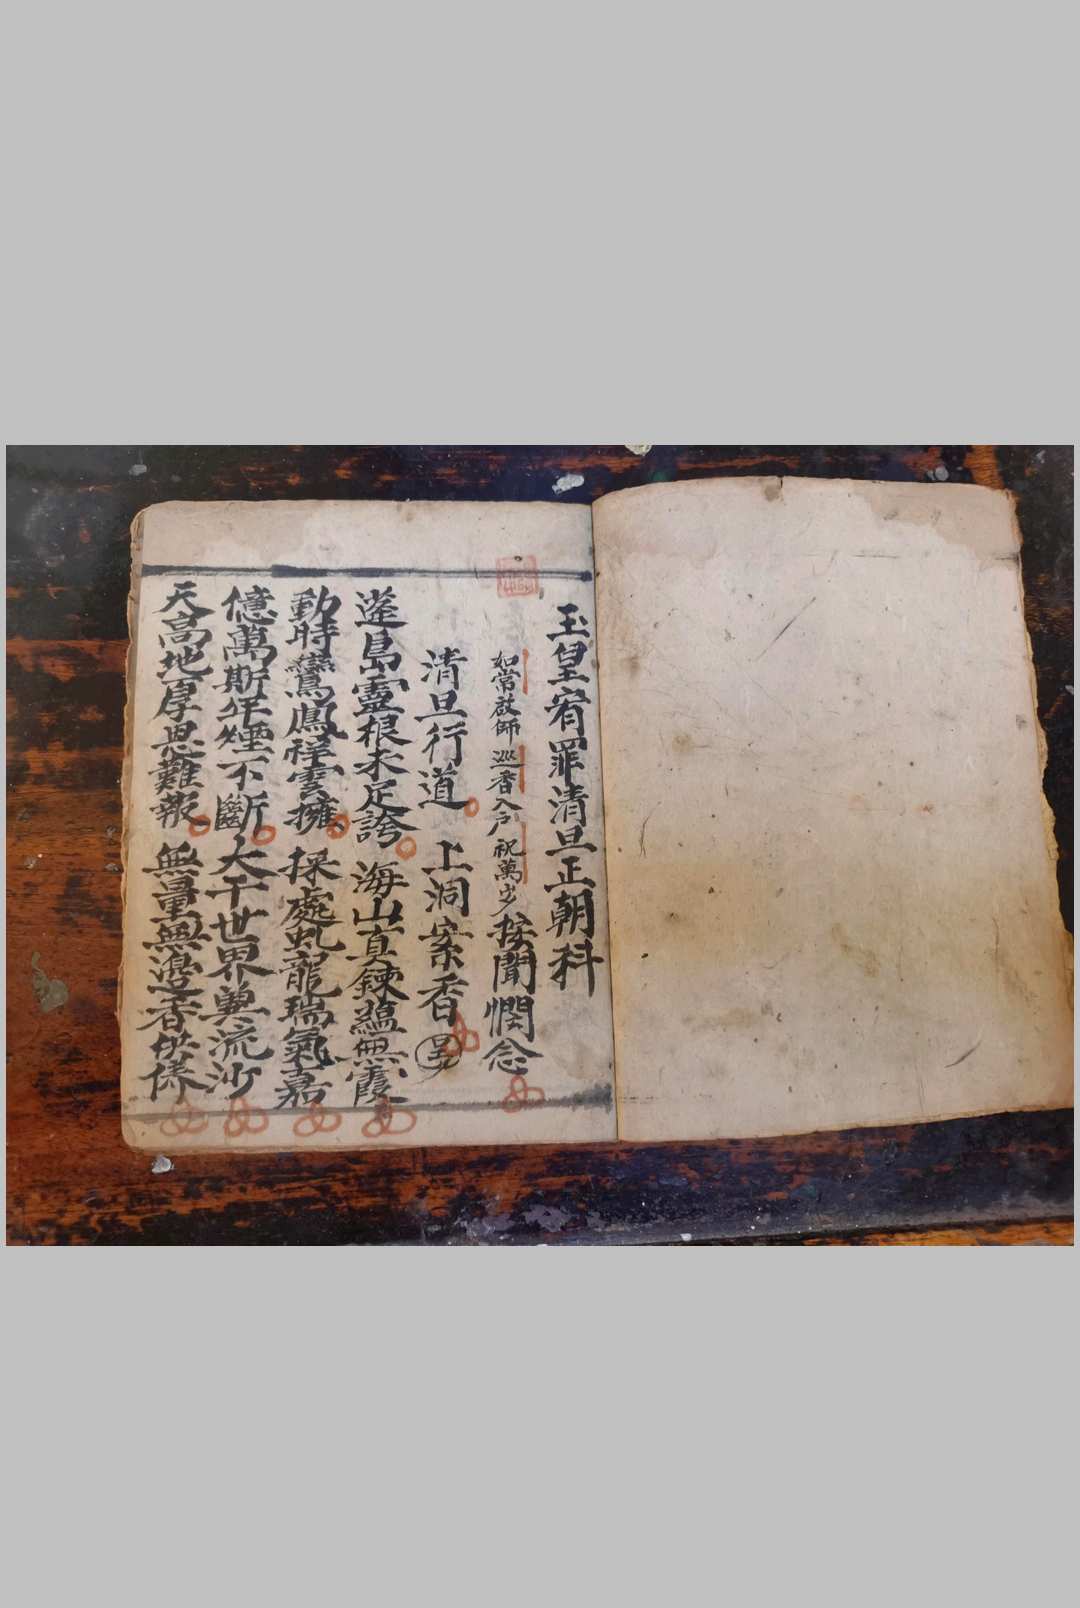 玉皇宥罪清旦正朝科
如常啟師 巡香入户 祝萬岁 按聞憫念
清旦行道 上洞案香
蓬島靈根未足誇 海山真鍊蘊無霞
動時鸞鳳祥雲擁 採處虬龍瑞氣嘉
億萬斯年煙不斷 大千世界兾流沙
天高地厚恩難報 無量無邉香供俸